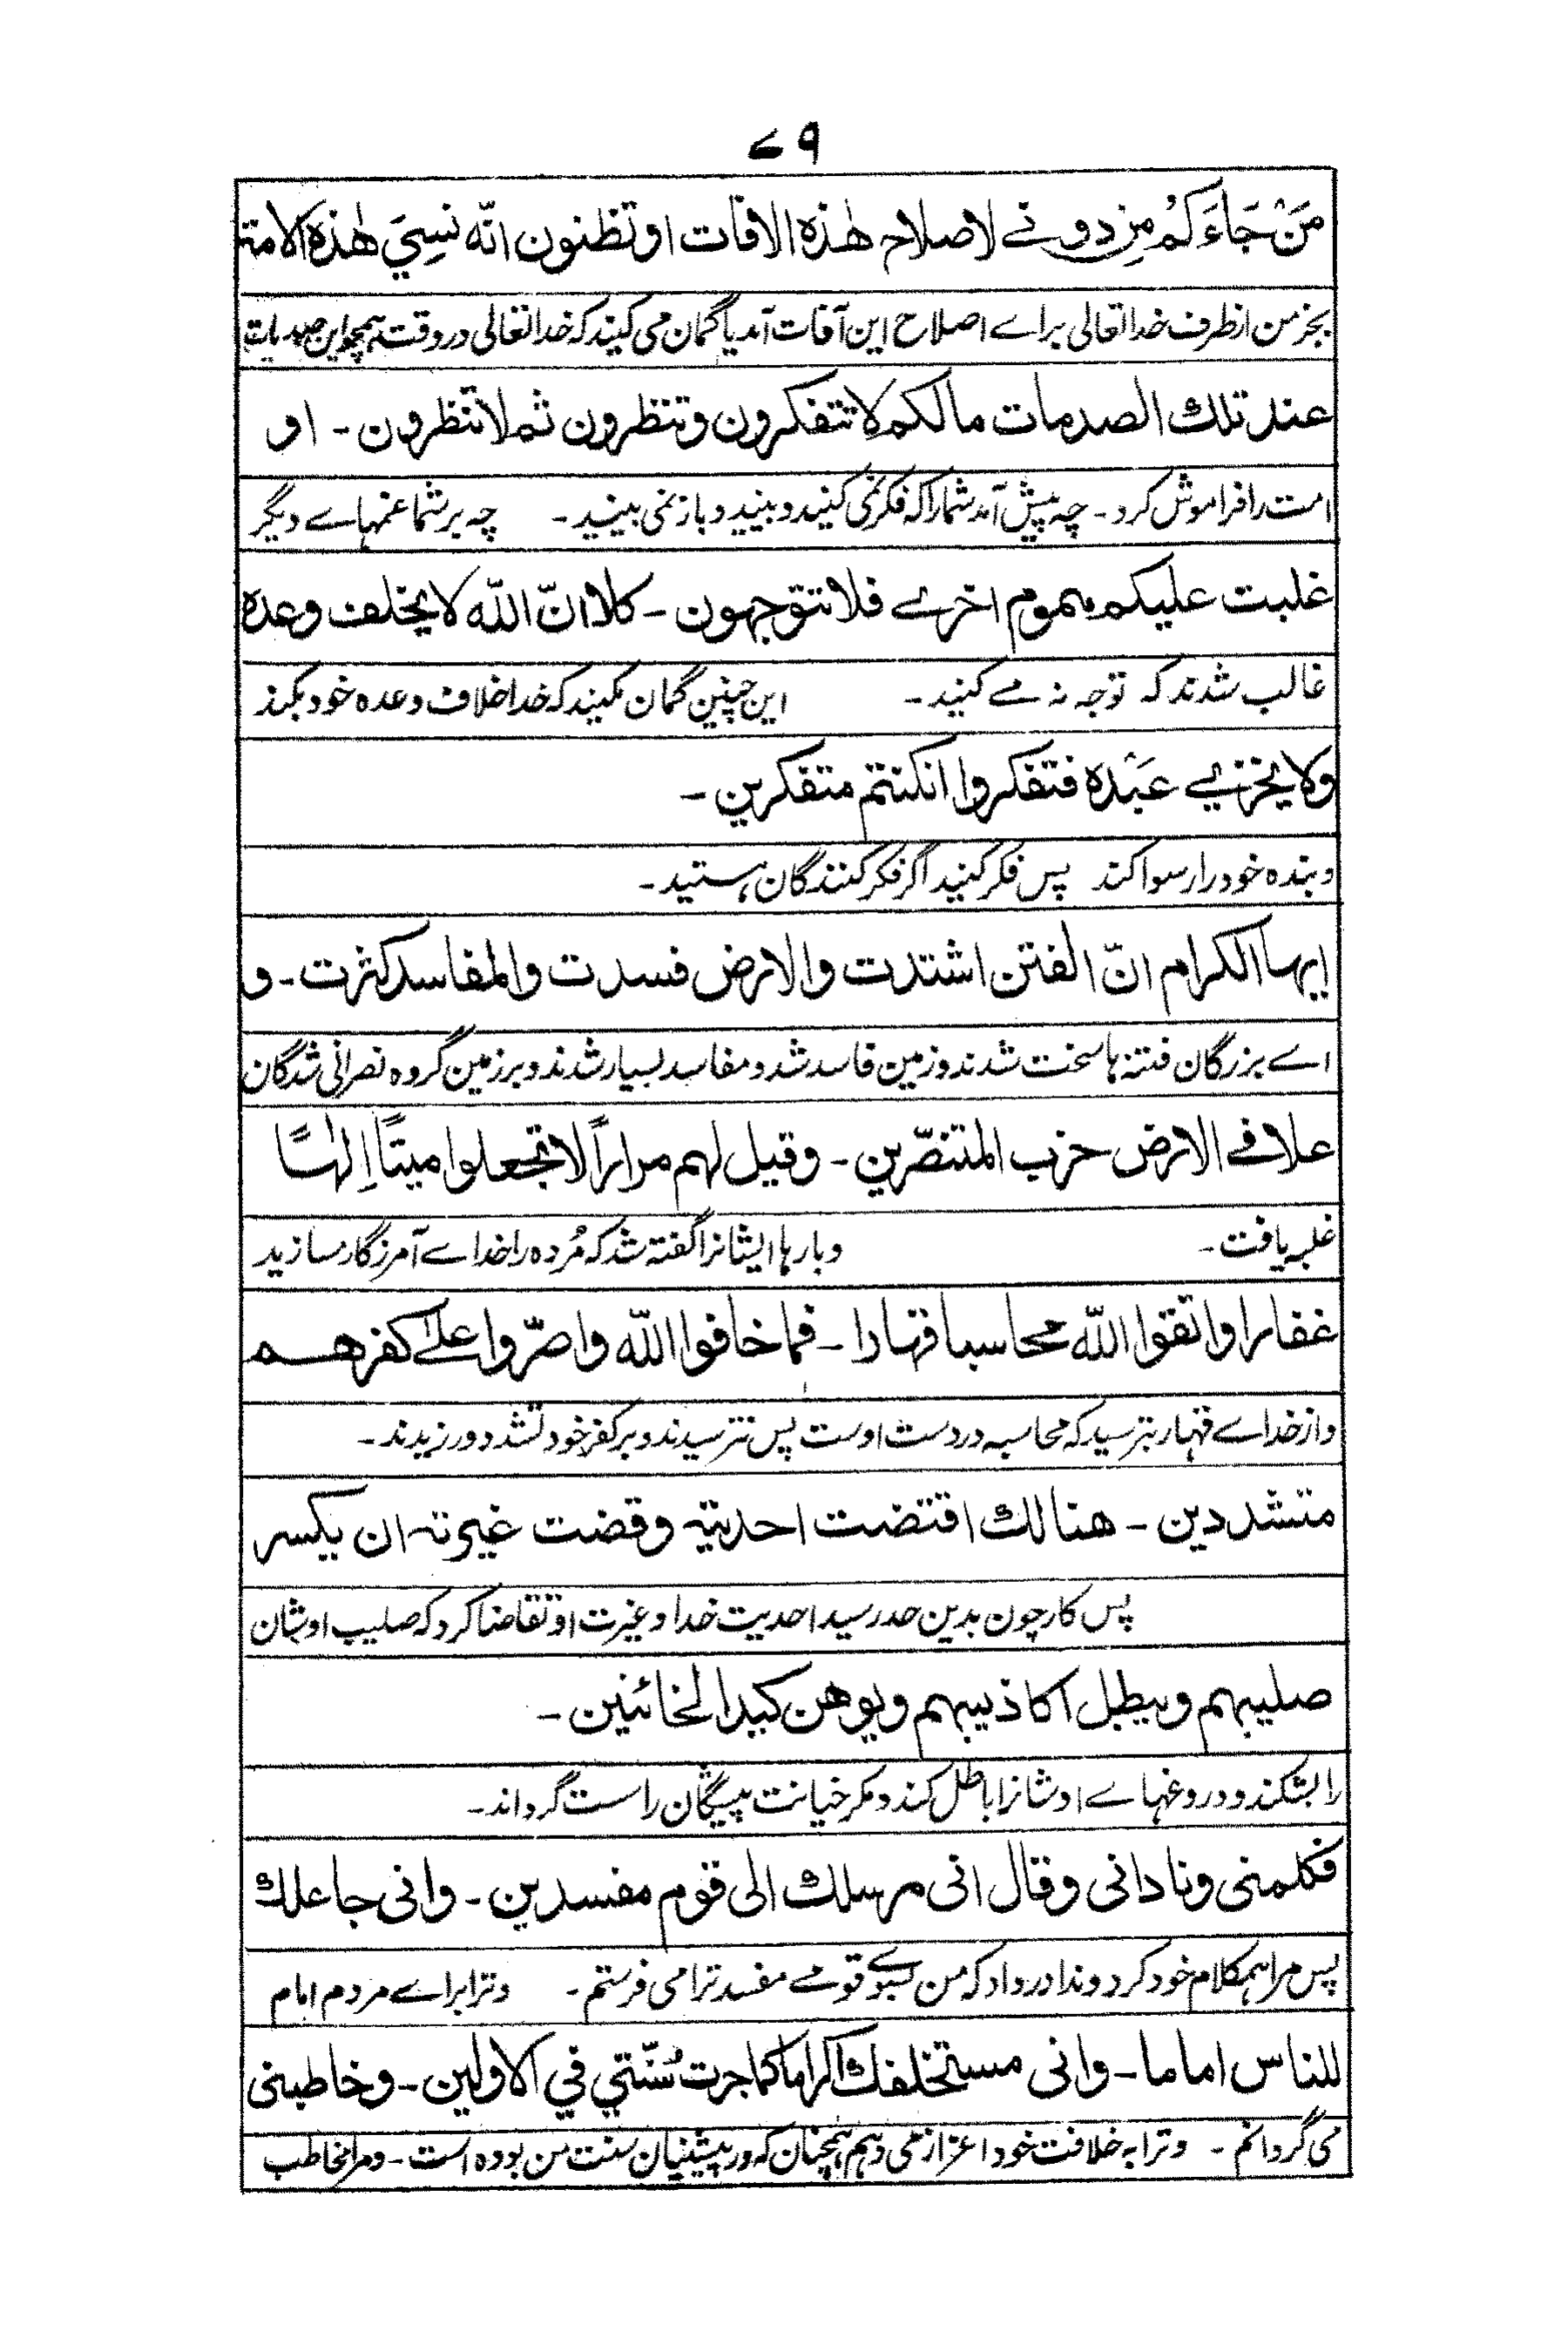 ۷۹
مَنْ جَاءَكُمْ مِنْ دونے لاصلاح هٰذه الافات او تظنون انّه نَسِيَ هٰذه الامة
بجز من از طرف خدا تعالیٰ براے اصلاح این آفات آمد یا گمان می کنید که خدا تعالیٰ در وقت ہمچو این صدمات
عند تلك الصدمات مالكم لا تتفكرون وتنظرون ثم لا تنظرون ـ او
امت را فراموش کرد ـ چہ پیش آمد شما را که فکر نمی کنید و بینید و باز نمی بینید ـ چہ بر شما غمہاے دیگر
غلبت عليكم هموم اخرے فلا تتوجهون ـ كلا انّ اللّٰه لا يخلف وعده
غالب شدند که توجه نہ مے کنید ـ این چنین گمان مکنید که خدا خلاف وعدہ خود بکند
ولا يخزي عَبْدہ فتفكروا ان كنتم متفكرين ـ
و بندہ خود را رسوا کند پس فکر کنید اگر فکر کنندگان ہستید ـ
ايها الكرام انّ الفتن اشتدت والارض فسدت والمفاسد كثرت ـ و
اے بزرگان فتنہ ہا سخت شدند و زمین فاسد شد و مفاسد بسیار شدند و بر زمین گروه نصرانی شدگان
علا فے الارض حزب المتنصّرين ـ وقيل لهم مراراً لا تجعلوا ميتاً اِلٰهاً
غلبہ یافت ـ و بارہا ایشانرا گفتہ شد که مُردہ را خداے آمرزگار مسازید
غفارا واتقوا اللّٰه محاسبا قهارا ـ فما خافوا اللّٰه واصرّوا علےٰ كفرهم
و از خداے قہار بترسید که محاسبہ در دست اوست پس نترسیدند و بر کفر خود تشدد ورزیدند ـ
متشددين ـ هنالك اقتضت احديته وقضت غيرته ان يكسر
پس کار چون بدین حد رسید احدیت خدا و غیرت او تقاضا کرد که صلیب اوشان
صليبهم ويبطل اكاذيبهم ويوهن كيد الخائنين ـ
را بشکند و دروغہاے اوشانرا باطل کند و مکر خیانت پیشگان را سست گرداند ـ
فكلمنى ونادانى وقال انى مرسلك الى قوم مفسدين ـ وانى جاعلك
پس مرا ہمکلام خود کرد و ندا در داد که من بسوے قومے مفسد ترا می فرستم ـ و ترا براے مردم امام
للناس اماما ـ وانى مستخلفك اكراما كما جرت سُنّتي في الاولين ـ وخاطبنى
می گردانم ـ و ترا بہ خلافت خود اعزاز می دہم ہمچنان که در پیشینیان سنت من بودہ است ـ و مرا مخاطب